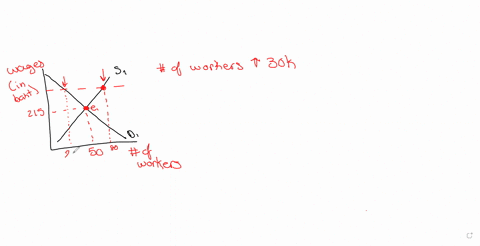 wages
(in
baht)
S₁
# of workers ↑ 30k
215
e₁
D₁
50 80
# of
workers